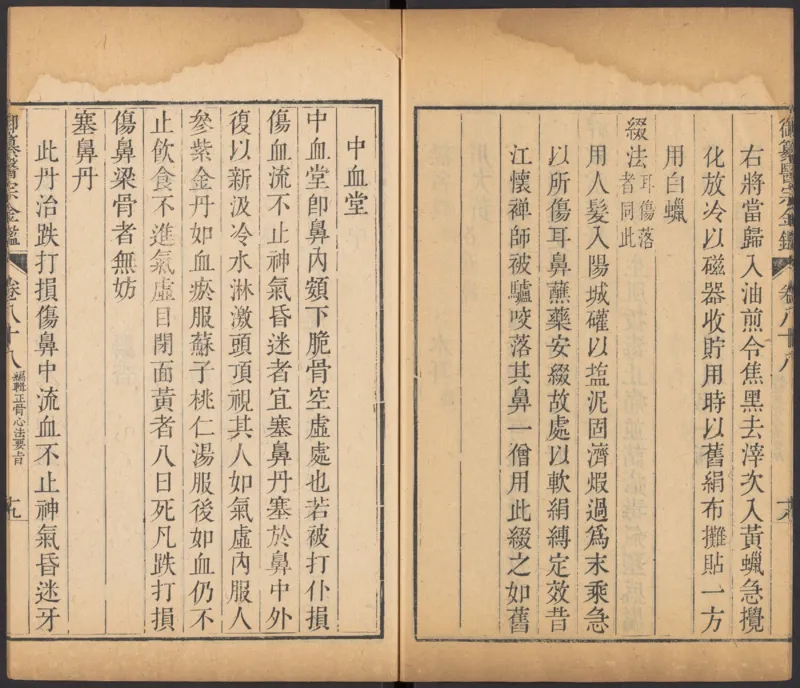 右將當歸入油煎令焦黑去滓次入黃蠟急攪
化放冷以磁器收貯用時以舊絹布攤貼一方
用白蠟
綴法耳傷落者同此
用人髮入陽城礶以塩泥固濟煅過爲末乘急
以所傷耳鼻蘸藥安綴故處以軟絹縛定效昔
江懷禅師被驢咬落其鼻一僧用此綴之如舊
御纂醫宗金鑑
卷八十八
中血堂
中血堂卽鼻內頞下脆骨空虛處也若被打仆損
傷血流不止神氣昏迷者宜塞鼻丹塞於鼻中外
復以新汲冷水淋激頭頂視其人如氣虛內服人
參紫金丹如血瘀服蘇子桃仁湯服後如血仍不
止飮食不進氣虛目閉面黃者八日死凡跌打損
傷鼻梁骨者無妨
塞鼻丹
此丹治跌打損傷鼻中流血不止神氣昏迷牙
御纂醫宗金鑑
卷八十八
編輯正骨心法要旨
十九